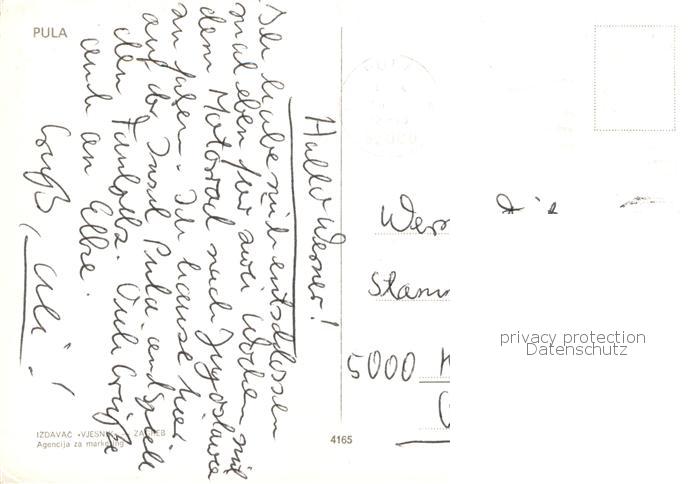 PULA
Hallo Werner!
Ich habe mich entschlossen
mal eben für zwei Wochen mit
dem Motorrad nach Jugoslawien
zu fahren. Ich hause hier
auf der Insel Pula und spiele
den Faulpelz. Viele Grüße
auch an Elke.
Gruß, Uli!
IZDAVAČ «VJESNIK» — ZAGREB
Agencija za marketing
4165
PULA
52000
Wer
Stam
5000 K
privacy protection
Datenschutz